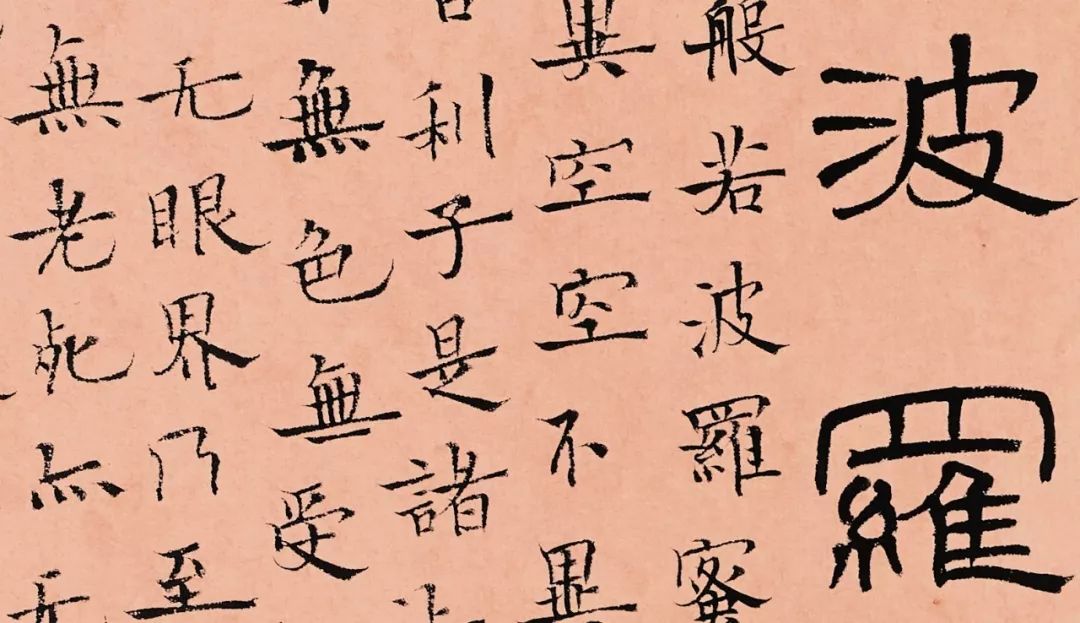 波羅
般若波羅蜜
異空空不異
利子是諸
無色無受
无眼界乃至
無老死亦无